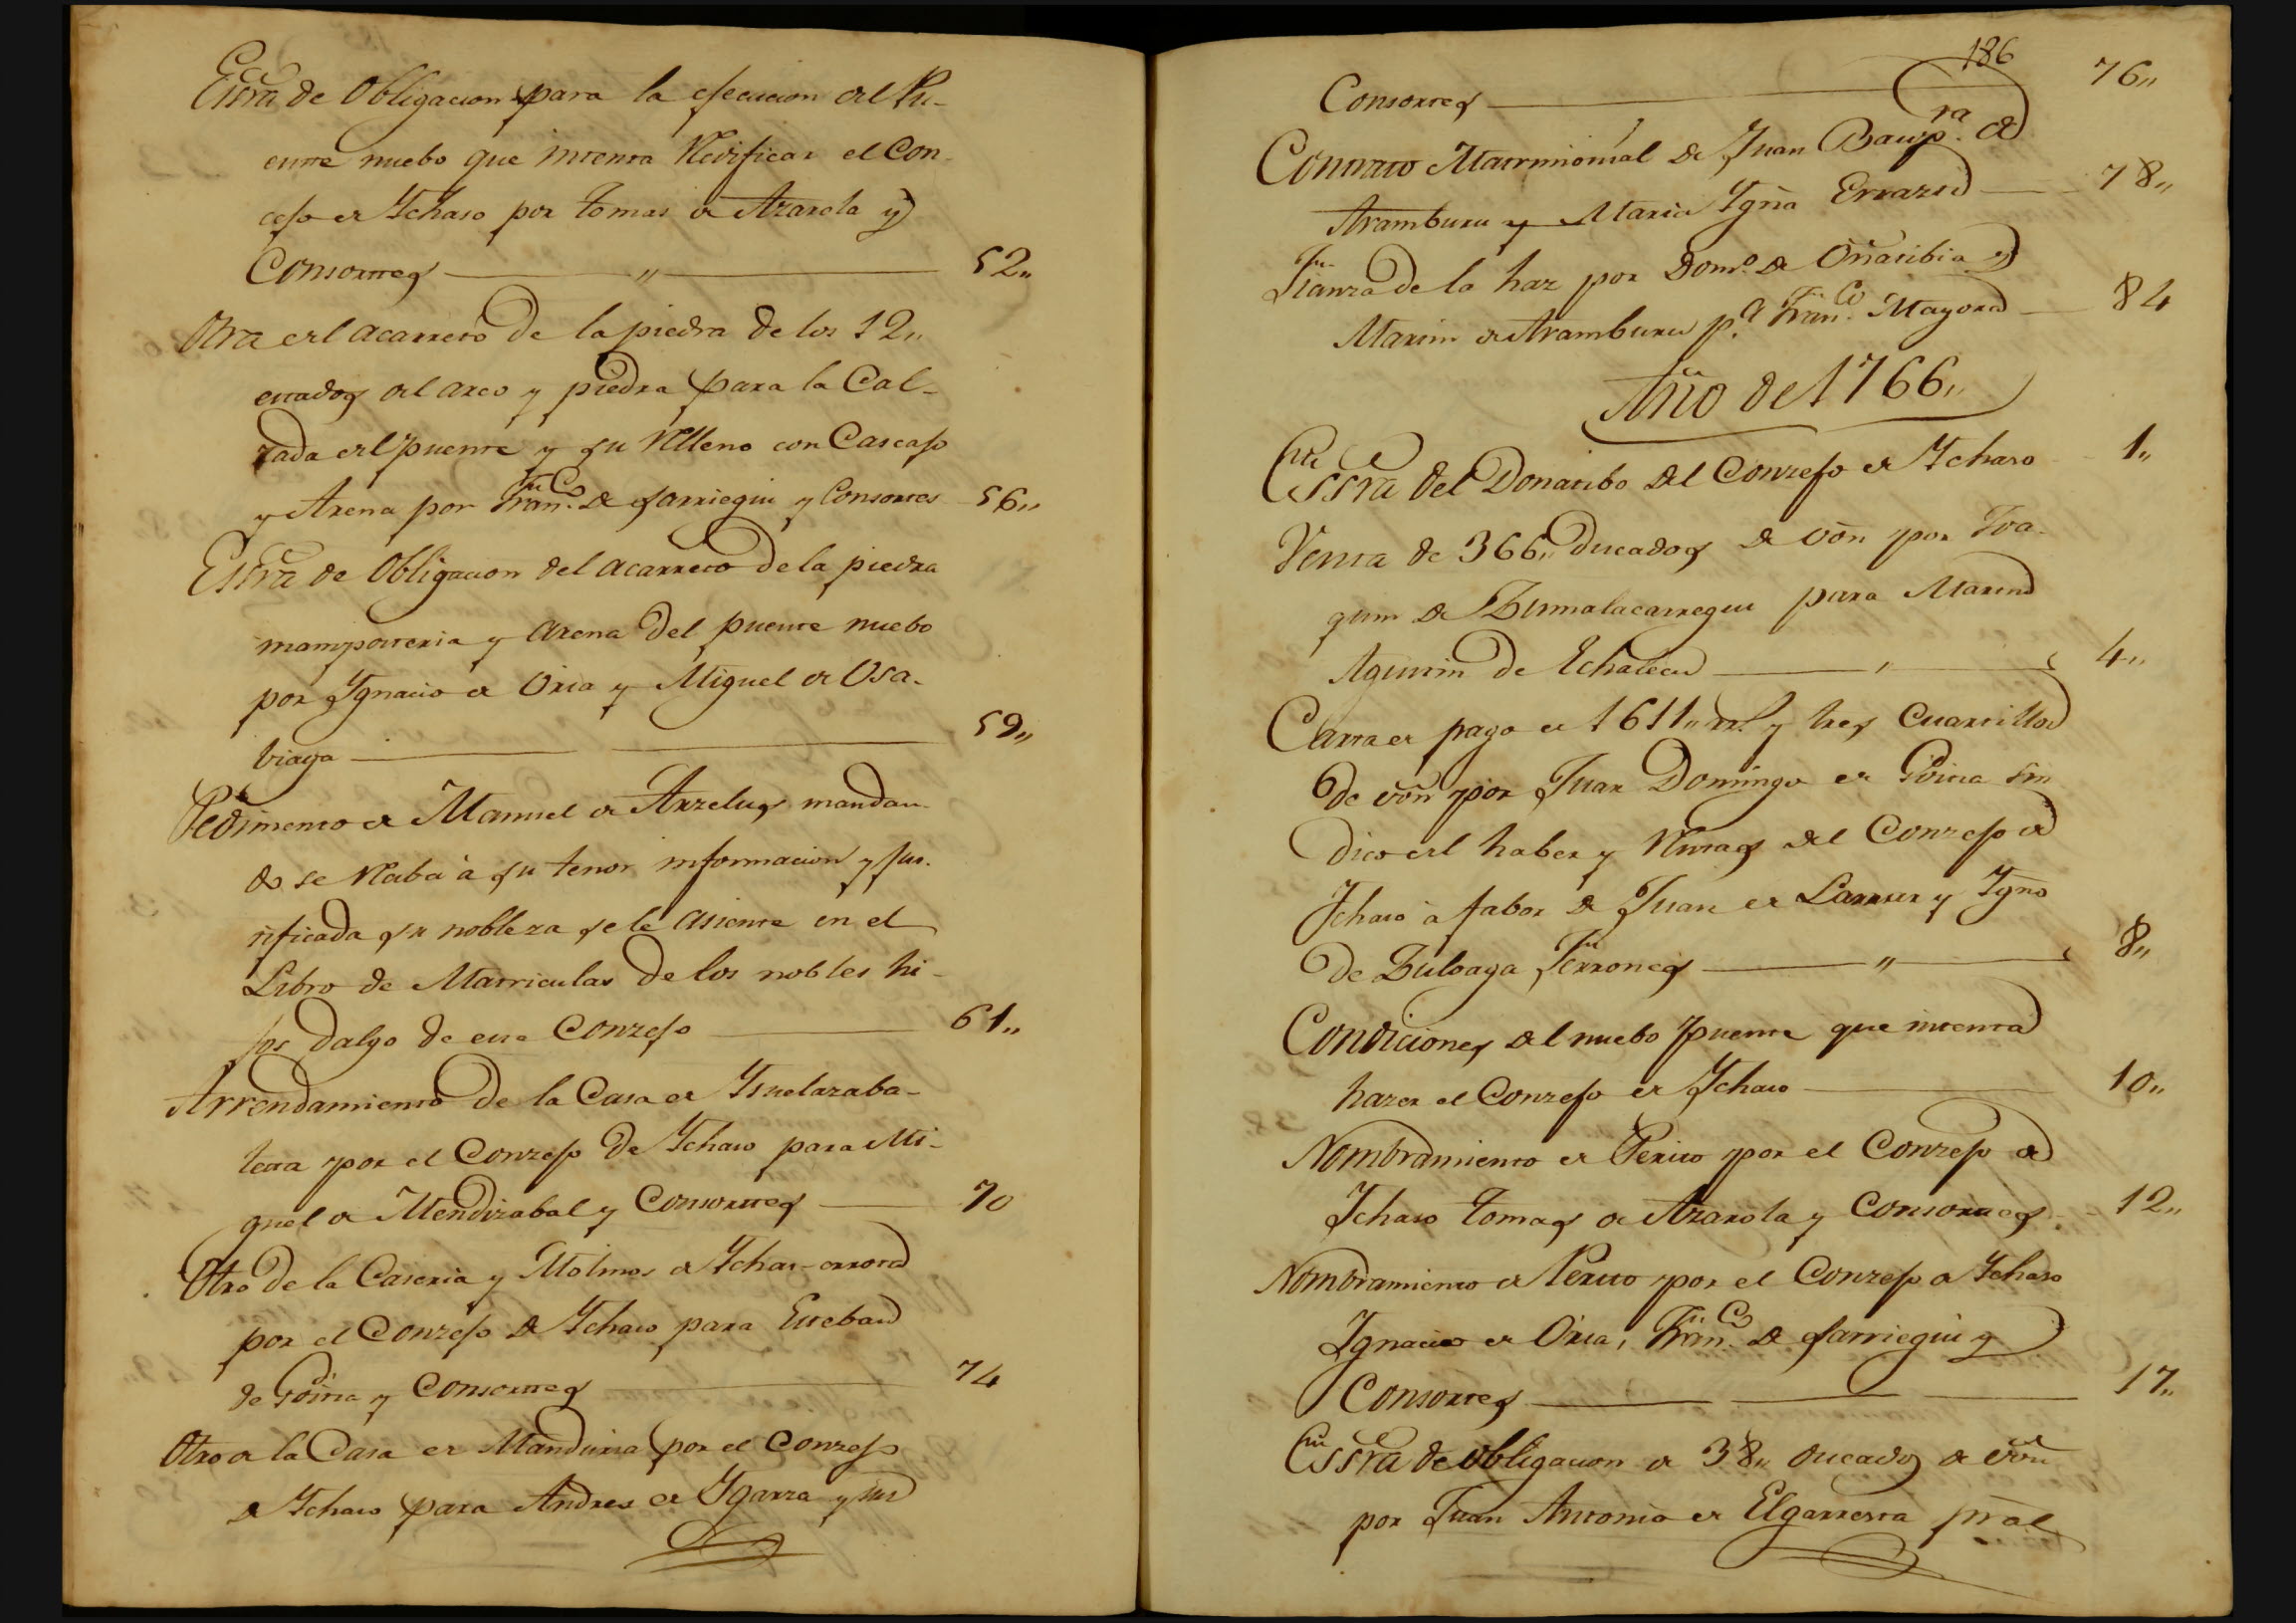 Essra de Obligacion para la ejecucion del Pu-
ente nuebo que intenta Redificar el Con-
cejo de Ychaso por Tomas de Azarola y
Consortes — 52,,
Otra del acarreto de la piedra de los 12,,
estados del arco y piedra para la Cal-
zada del puente y su Relleno con Cascajo
y Arena por Franco. de Sarriegui y Consortes 56,,
Essra de Obligacion del acarreto de la piedra
mamposteria y arena del puente nuebo
por Ygnacio de Oria y Miguel de Osa-
biaga — 59,,
Pedimento de Manuel de Arzelus mandan-
do se Reciba à su tenor informacion y jus-
tificada su nobleza se le asiente en el
Libro de Matriculas de los nobles hi-
jos dalgo de este Conzejo — 61,,
Arrendamiento de la Casa de Ysuelazaba-
letta por el Conzejo de Ychaso para Mi-
guel de Mendizabal y Consortes — 70
Otro de la Caseria y Molinos de Ychas-orrota
por el Conzejo de Ychaso para Esteban
de Goiria y Consortes — 74
Otro de la Casa de Manduria por el Conzejo
de Ychaso para Andres de Ygarza y sus
186
Consortes — 76,,
Contrato Matrimonial de Juan Baupra. de
Aramburu y Maria Ygña Errazti — 78,,
Fianza de la haz por Domo. de Oñatibia y
Martin de Aramburu pa. Franco. Mayora — 84
Año de 1766,,
Essra del Donatibo del Conzejo de Ychaso — 1,,
Venta de 366,, ducados de von por Joa-
quin de Zumalacarregui para Martin
Agustin de Echatecu — 4,,
Carta de pago de 1611,, rrs. y tres Cuartillos
de von por Juan Domingo de Goiria Sin
dico del haber y Rentas del Conzejo de
Ychaso à fabor de Juan de Larrar y Ygno
de Zuloaga Ferrones — 8,,
Condiciones del nuebo puente que intenta
hazer el Conzejo de Ychaso — 10,,
Nombramiento de Perito por el Conzejo de
Ychaso Tomas de Azarola y Consortes — 12,,
Nombramiento de Perito por el Conzejo de Ychaso
Ygnacio de Oria, Franco. de Sarriegui y
Consortes — 17,,
Essra de obligacion de 38,, ducados de von
por Juan Antonio de Elgarresta pral